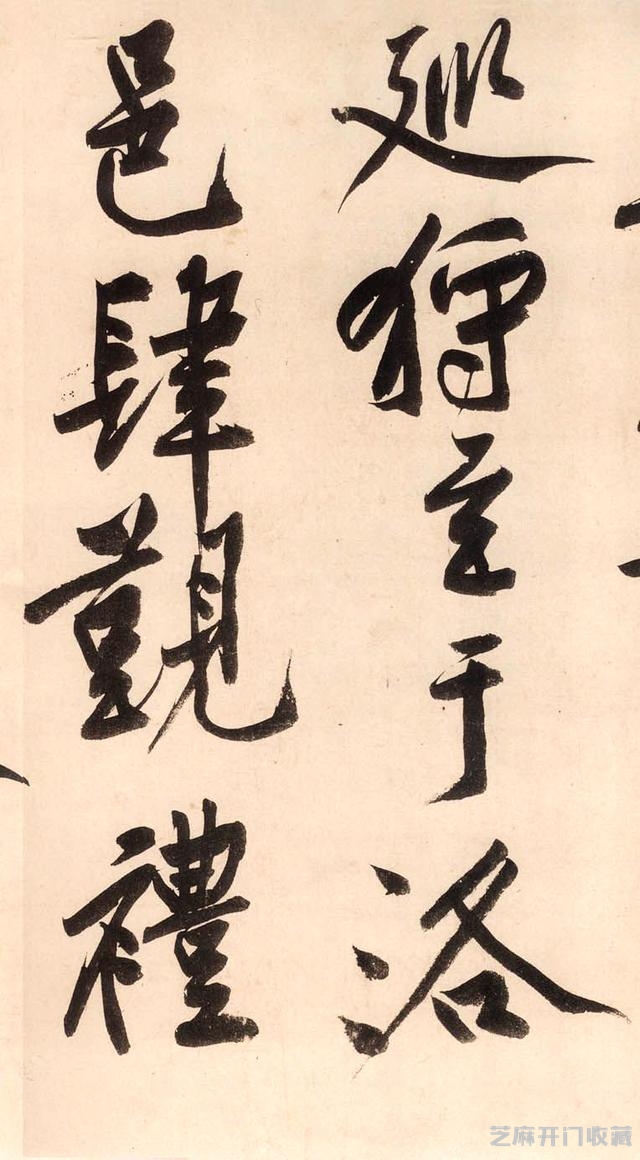 廵狩至于洛
邑肆覲禮
芝麻开门收藏